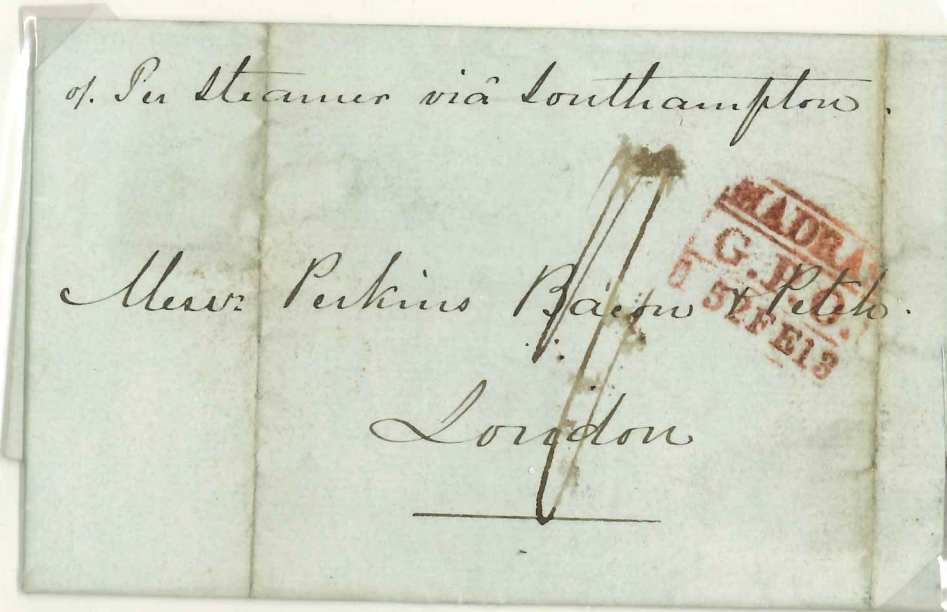 Per Steamer viâ Southampton.
Messrs Perkins Bacon & Petch.
London
MADRA
G.P.O.
52 FE 13